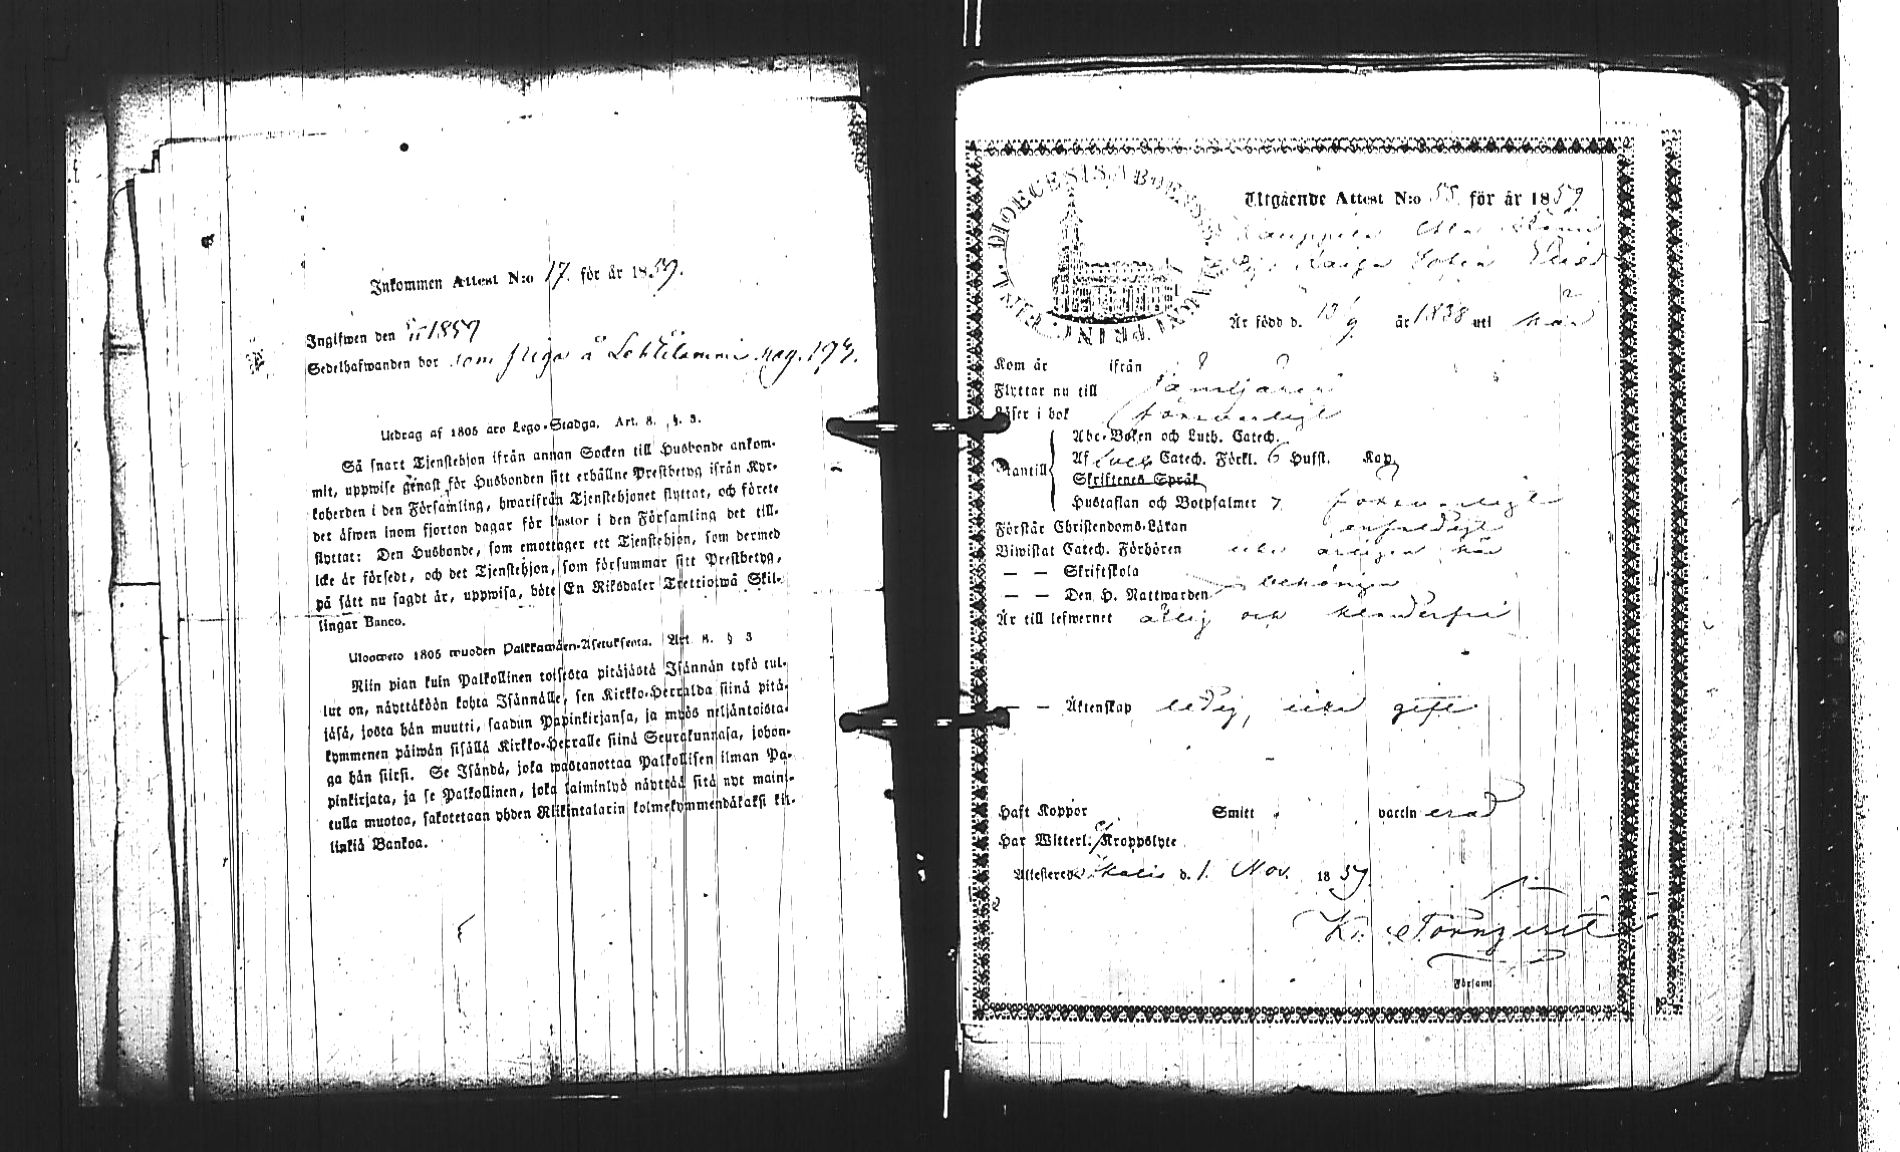 Inkommen Attest N:o 17. för år 1859.
Inglfwen den 5/11 1859
Sedelhafwanden bor som piga å Lehtilammi pag. 173.
Utdrag af 1805 års Lego-Stadga. Art. 8. §. 3.
Så snart Tjenstehjon ifrån annan Socken till Husbonde ankom-
mit, uppwise genast för Husbonden sitt erhållne Prestbetyg ifrån Kyr-
koherden i den Församling, hwarifrån Tjenstehjonet flyttat, och förete
det äfwen inom fjorton dagar för Pastor i den Församling det till-
flyttat: Den Husbonde, som emottager ett Tjenstehjon, som dermed
icke är försedt, och det Tjenstehjon, som försummar sitt Prestbetyg,
på sätt nu sagdt är, uppwisa, böte En Riksdaler Trettiotwå Skil-
lingar Banco.
Uloosweto 1805 wuoden Palkkawäen-Asetuksesta. Art. 8. § 3
Niin pian kuin Palkollinen toisesta pitäjästä Isännän tykö tul-
lut on, näyttäköön kohta Isännälle, sen Kirkko-Herralda siinä pitä-
jäsä, josta hän muutti, saadun Papinkirjansa, ja myös neljäntoista-
kymmenen päiwän sisällä Kirkko-Herralle siinä Seurakunnasa, johon-
ga hän siirsi. Se Isändä, joka wastanottaa Palkollisen ilman Pa-
pinkirjata, ja se Palkollinen, joka laiminlyö näyttää sitä nyt maini-
tulla muotoa, sakotetaan yhden Riikintalarin kolmekymmendäkaksi kil-
linkiä Bankoa.
DIOECESIS ABOENSIS
Utgående Attest N:o 55. för år 1859
Sofia
Är född d. 13/9 år 1838 uti här
Kom år ifrån
Flyttar nu till Jämijärvi
Läser i bok försvarligt
Abc-Boken och Luth. Catech.
Utantill Af Catech. Förkl. 6 Husst. Kap.
Skriftenes Språk
Hustaflan och Botpsalmer 7 försvarligt
Förstår Christendoms-Läran enfaldigt
Biwistat Catech. Förhören årligen här
— — Skriftskola
— — Den H. Nattwarden behörigen
Är till lefwernet ärlig och klanderfri
— — Äktenskap ledig, icke gift
Haft Koppor Smitt vaccinerad
Har Witterl. ej Kroppslyte
Attesterar Ikalis d. 1. Nov. 1859.
Församl.